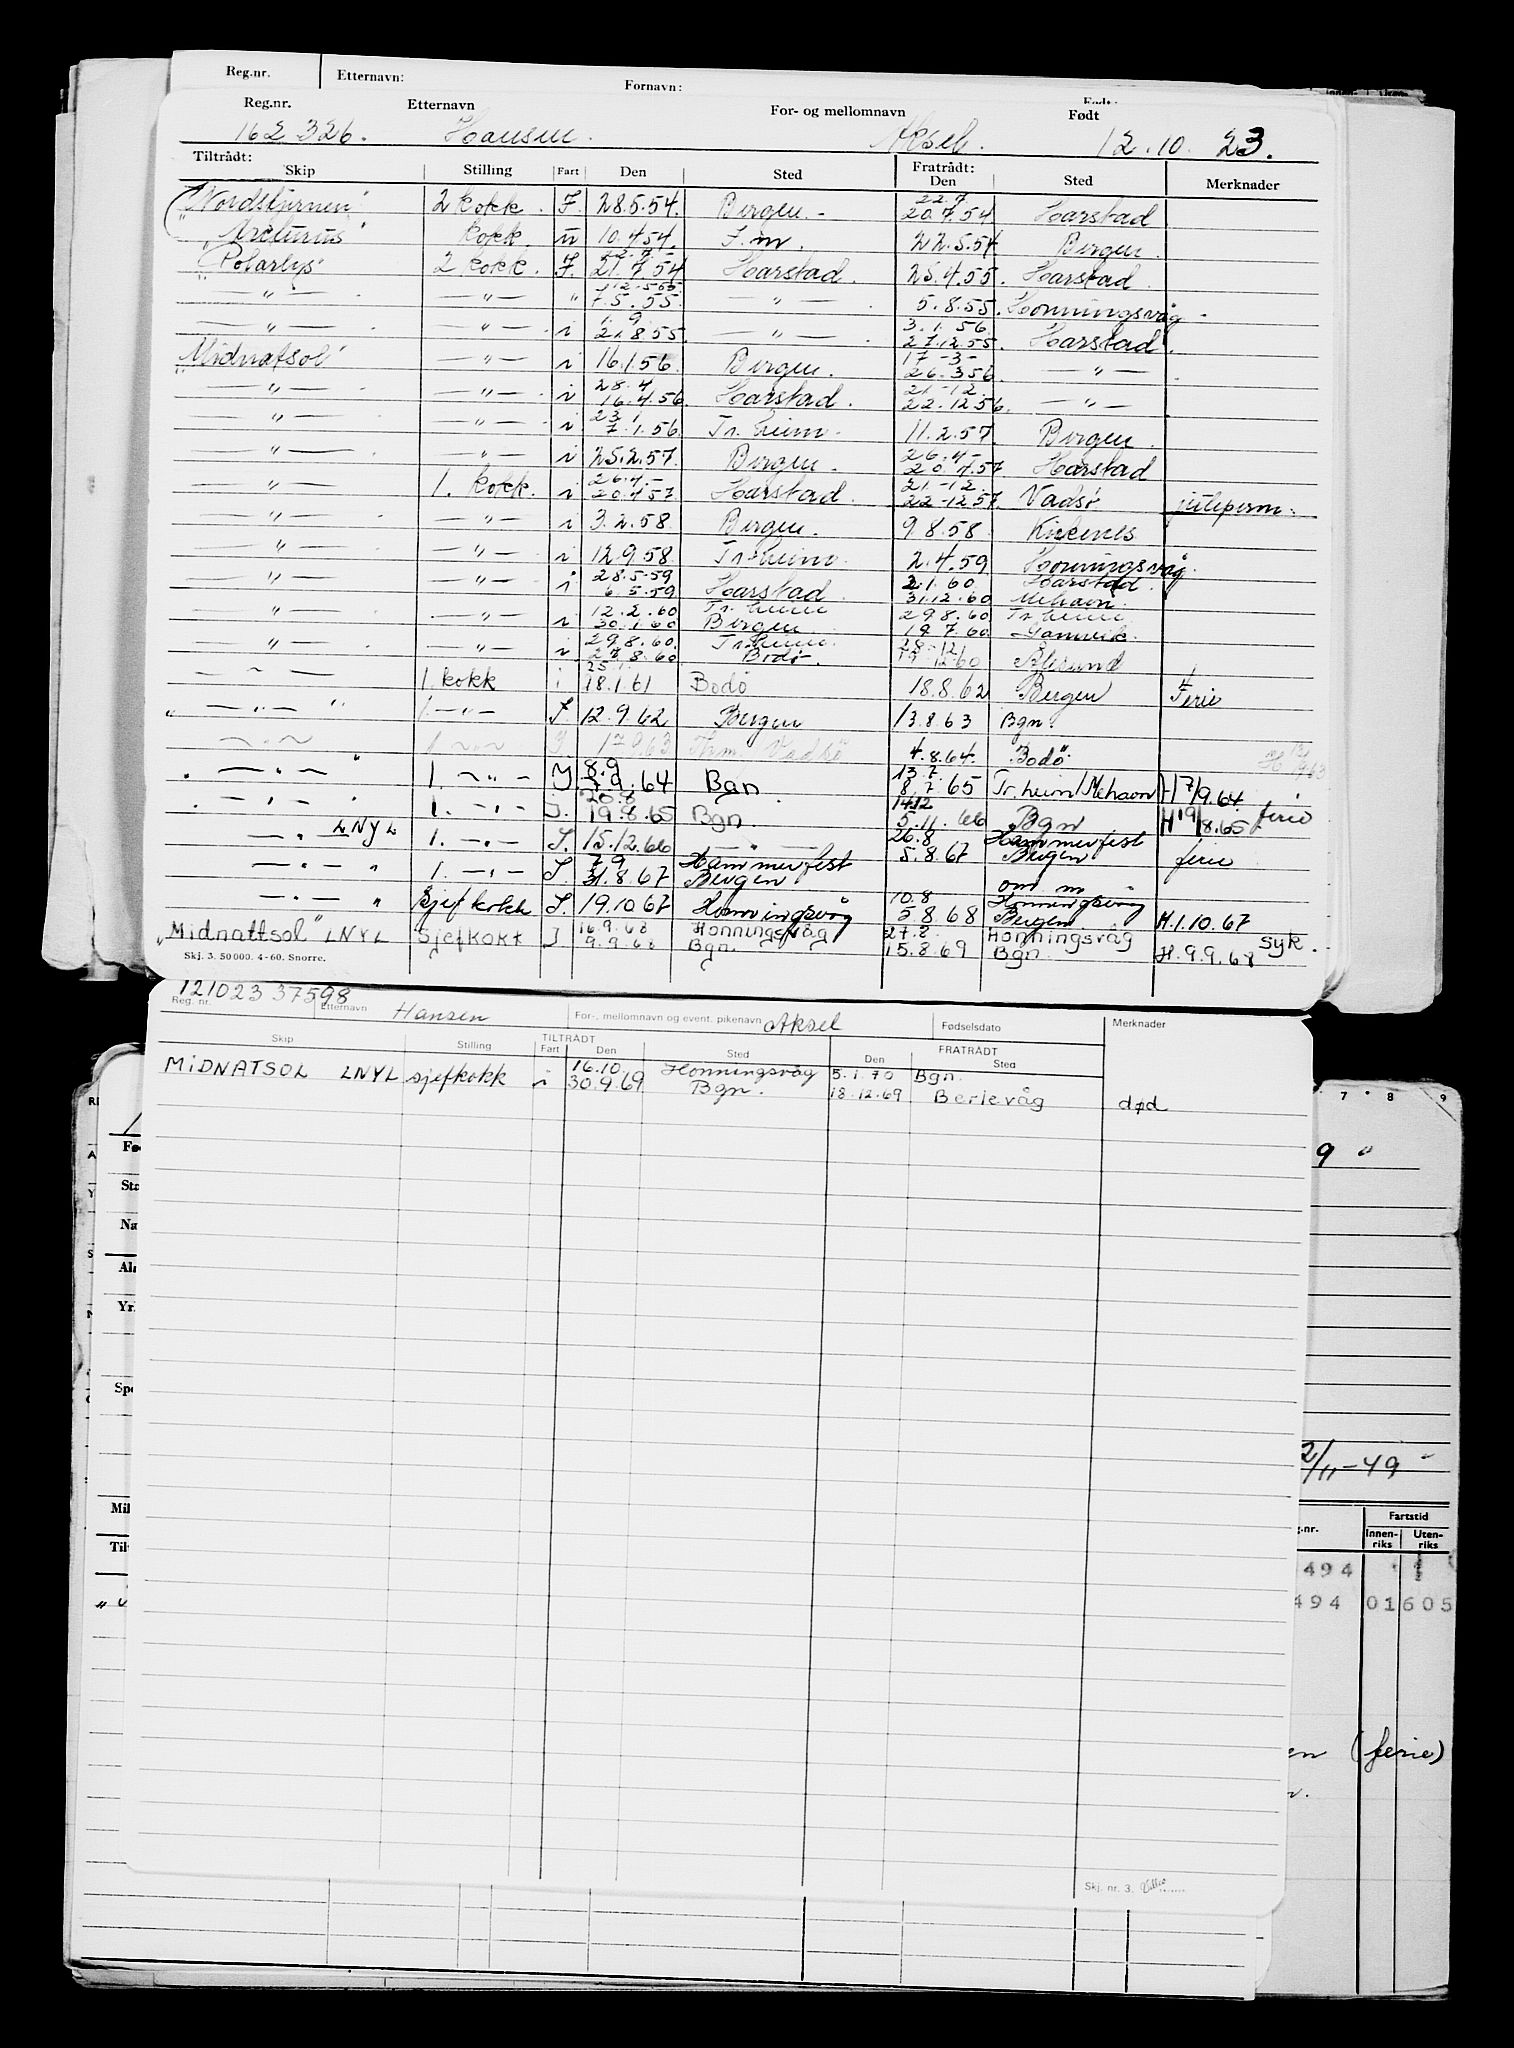 Reg.nr. Etternavn: Fornavn:
Reg.nr. Etternavn For- og mellomnavn Født
162326. Hansen. Aksel. 12.10. 23.
Tiltrådt: Fratrådt:
Skip Stilling Fart Den Sted Den Sted Merknader
"Nordstjernen" 2 kokk. F. 28.5.54. Bergen. - 22.7 20.7.54 Harstad
"Arcturus" kokk. u 10.4.54. S.m. 22.5.54 Bergen.
"Polarlys" 2 kokk. F. 21.7.54 Harstad. 25.4.55. Harstad.
— " — — " — " 7.5.55. — " — . 5.8.55. Honningsvåg.
— " — . — " — . i 1.9. 21.8.55. — " — . 3.1.56. 27.12.55. Harstad.
"Midnatsol" — " — i 16.1.56. Bergen. 17-3- 26.3.56. — " — .
— " — . — " — . i 28.4 16.4.56. Harstad. 21-12. 22.12.56. — " —
— " — — " — i 23.1 7.1.56. Tr.heim. 11.2.57. Bergen.
— " — — " — i 25.2.57. Bergen. 26.4- 20.4.57 Harstad
— " — 1. kokk. i 26.4.- 20.4.57. Harstad. 21.-12. 22-12.57. Vadsø juleperm.
— " — — " — i 3.2.58. Bergen. 9.8.58. Kirkenes
— " — — " — i 12.9.58 Tr.heim. 2.4.59 Honningsvåg.
— " — — " — i 28.5.59 6.5.59 Harstad. 2.1.60. 31.12.60 Harstad. Mehavn.
— " — — " — i 12.2.60 30.1.60 Tr.heim Bergen 29.8.60. 19.7.60 Tr.heim. Gamvik.
— " — — " — i 29.8.60. 27.8.60 Tr.heim. Bodø. 28.12. 19.12.60 Ålesund
— " — 1. kokk i 25.1 18.1.61 Bodö 18.8.62 Bergen Ferie
" — " — " 1. — " — I. 12.9.62 Bergen 13.8.63 Bgn.
— " — " 1. — " — I. 17.9.63 Thm. / Vadsö 4.8.64. Bodö.
" — " — " 1. — " — I. 8.9 7.9.64 Bgn. 13.7. 8.7.65 Tr.heim/Mehavn H 7/9.64.
" — " — . 1. — " — I. 20.8 19.8.65 Bgn 14.12 5.11.66 Bgn H 19/8.65 ferie
— " — LNYL 1. — " — I. 15.12.66 — " — 26.8 5.8.67 Hammerfest Bergen ferie
— " — " 1. — " — I. 7.9 31.8.67 Hammerfest Bergen om m
— " — " Sjefkokk I. 19.10.67 Honningsvåg 10.8 5.8.68 Honningsvåg Bergen H.1.10.67
"Midnattsol" LNYL Sjefkokk I 16.9.68 9.9.68 Honningsvåg Bgn. 27.8. 15.8.69 Honningsvåg Bgn. H.9.9.68 syk.
Skj. 3. 50000. 4-60. Snorre.
121023 37598
Reg. nr. Etternavn Hansen For-, mellomnavn og event. pikenavn Aksel Fødselsdato Merknader
TILTRÅDT FRATRÅDT
Skip Stilling Fart Den Sted Den Sted
MIDNATSOL LNYL sjefkokk i 16.10. 30.9.69 Honningsvåg Bgn. 5.1.70 Bgn.
18.12.69 Berlevåg død
7 8 9
9 "
2/11-49
Fartstid
g.nr. Innen-riks Uten-riks
494
494 01605
en (ferie)
Skj. nr. 3.